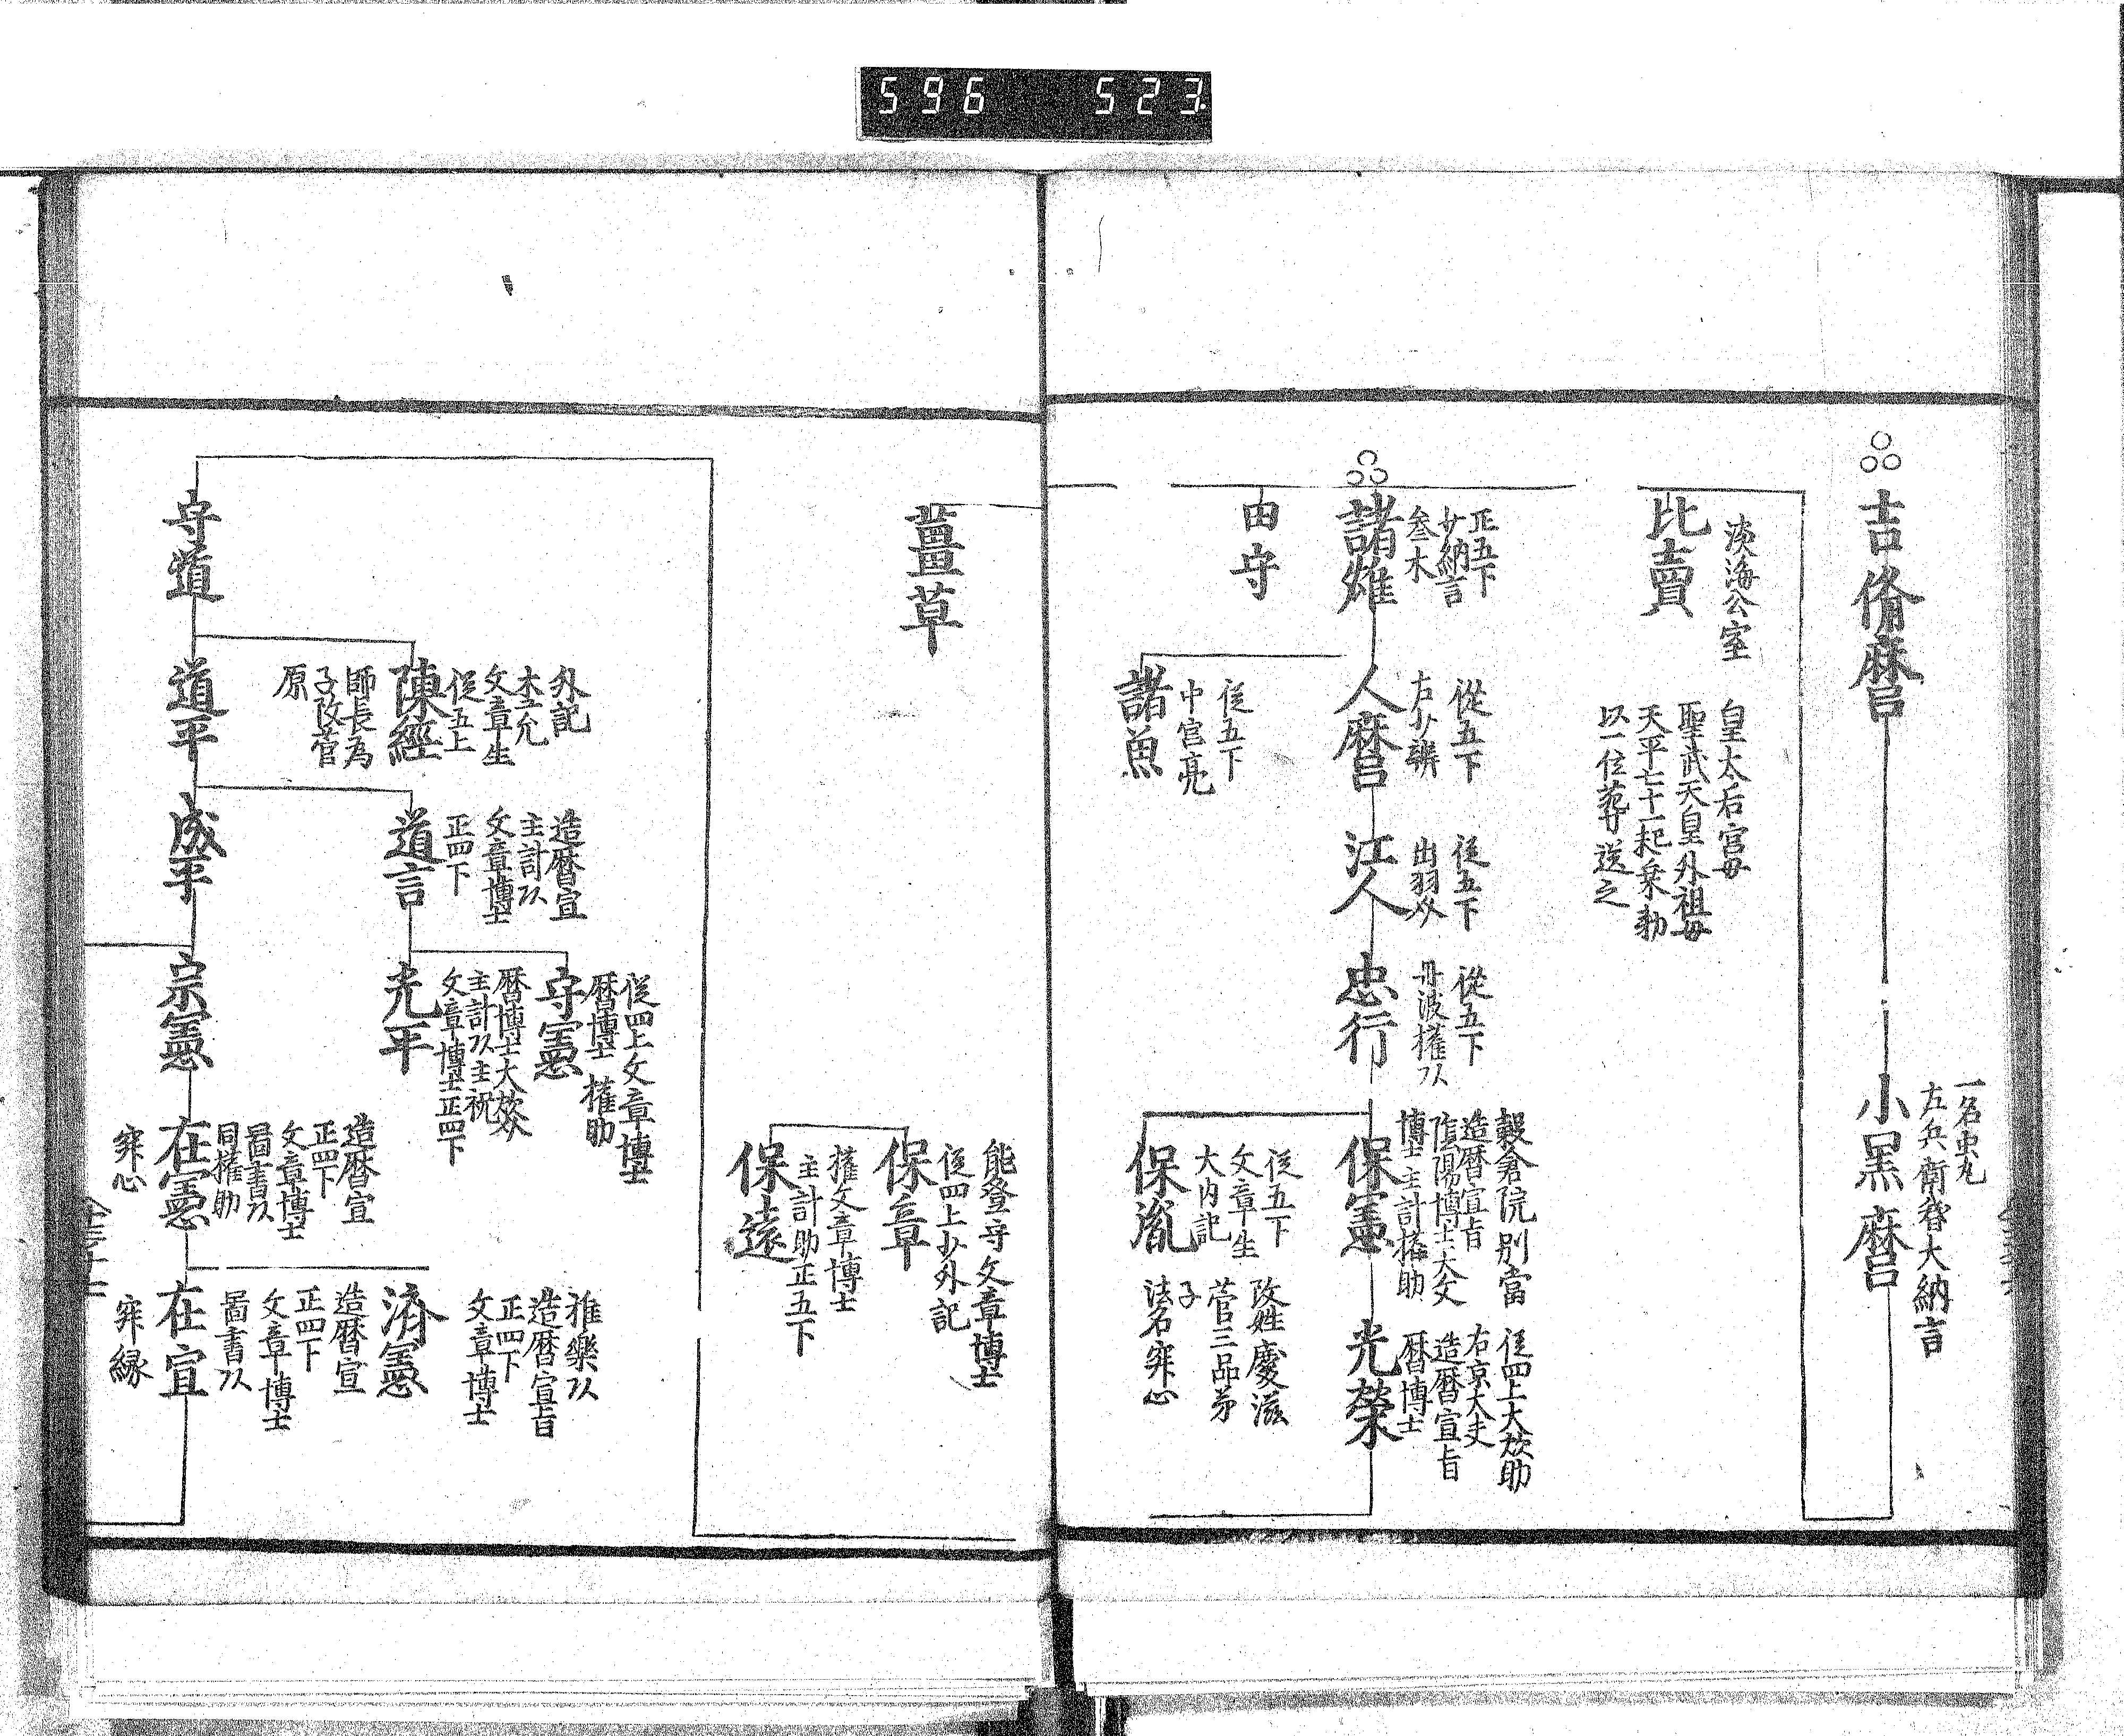 596 523
吉脩麿
小黒麿
一名虫丸
左兵衛督大納言
比賣
淡海公室
皇太后宮母
聖武天皇外祖母
天平七十一起乗勅
以一位葬送之
諸雄
正五下
少納言
叁木
人麿
從五下
右少辨
江人
従五下
出羽介
忠行
從五下
丹波権介
保憲
穀倉院別當
造暦宣旨
陰陽博士大父
博士主計権助
光榮
従四上大炊助
右京大夫
造暦宣旨
暦博士
由守
諸魚
従五下
中宮亮
保胤
従五下
文章生
大内記
改姓慶滋
菅三品弟
子
法名寂心
薑草
保章
能登守文章博士
従四上少外記
保遠
権文章博士
主計助正五下
守道
陳經
外記
木工允
文章生
従五上
師長為
子改菅
原
道平
道言
造暦宣
主計头
文章博士
正四下
成平
守憲
従四上文章博士
暦博士 権助
光平
暦博士大炊介
主計头主税
文章博士正四下
宗憲
在憲
造暦宣
正四下
文章博士
啚書头
同権助
寂心
濟憲
雅樂头
造暦宣旨
正四下
文章博士
在宣
造暦宣
正四下
文章博士
啚書头
寂縁